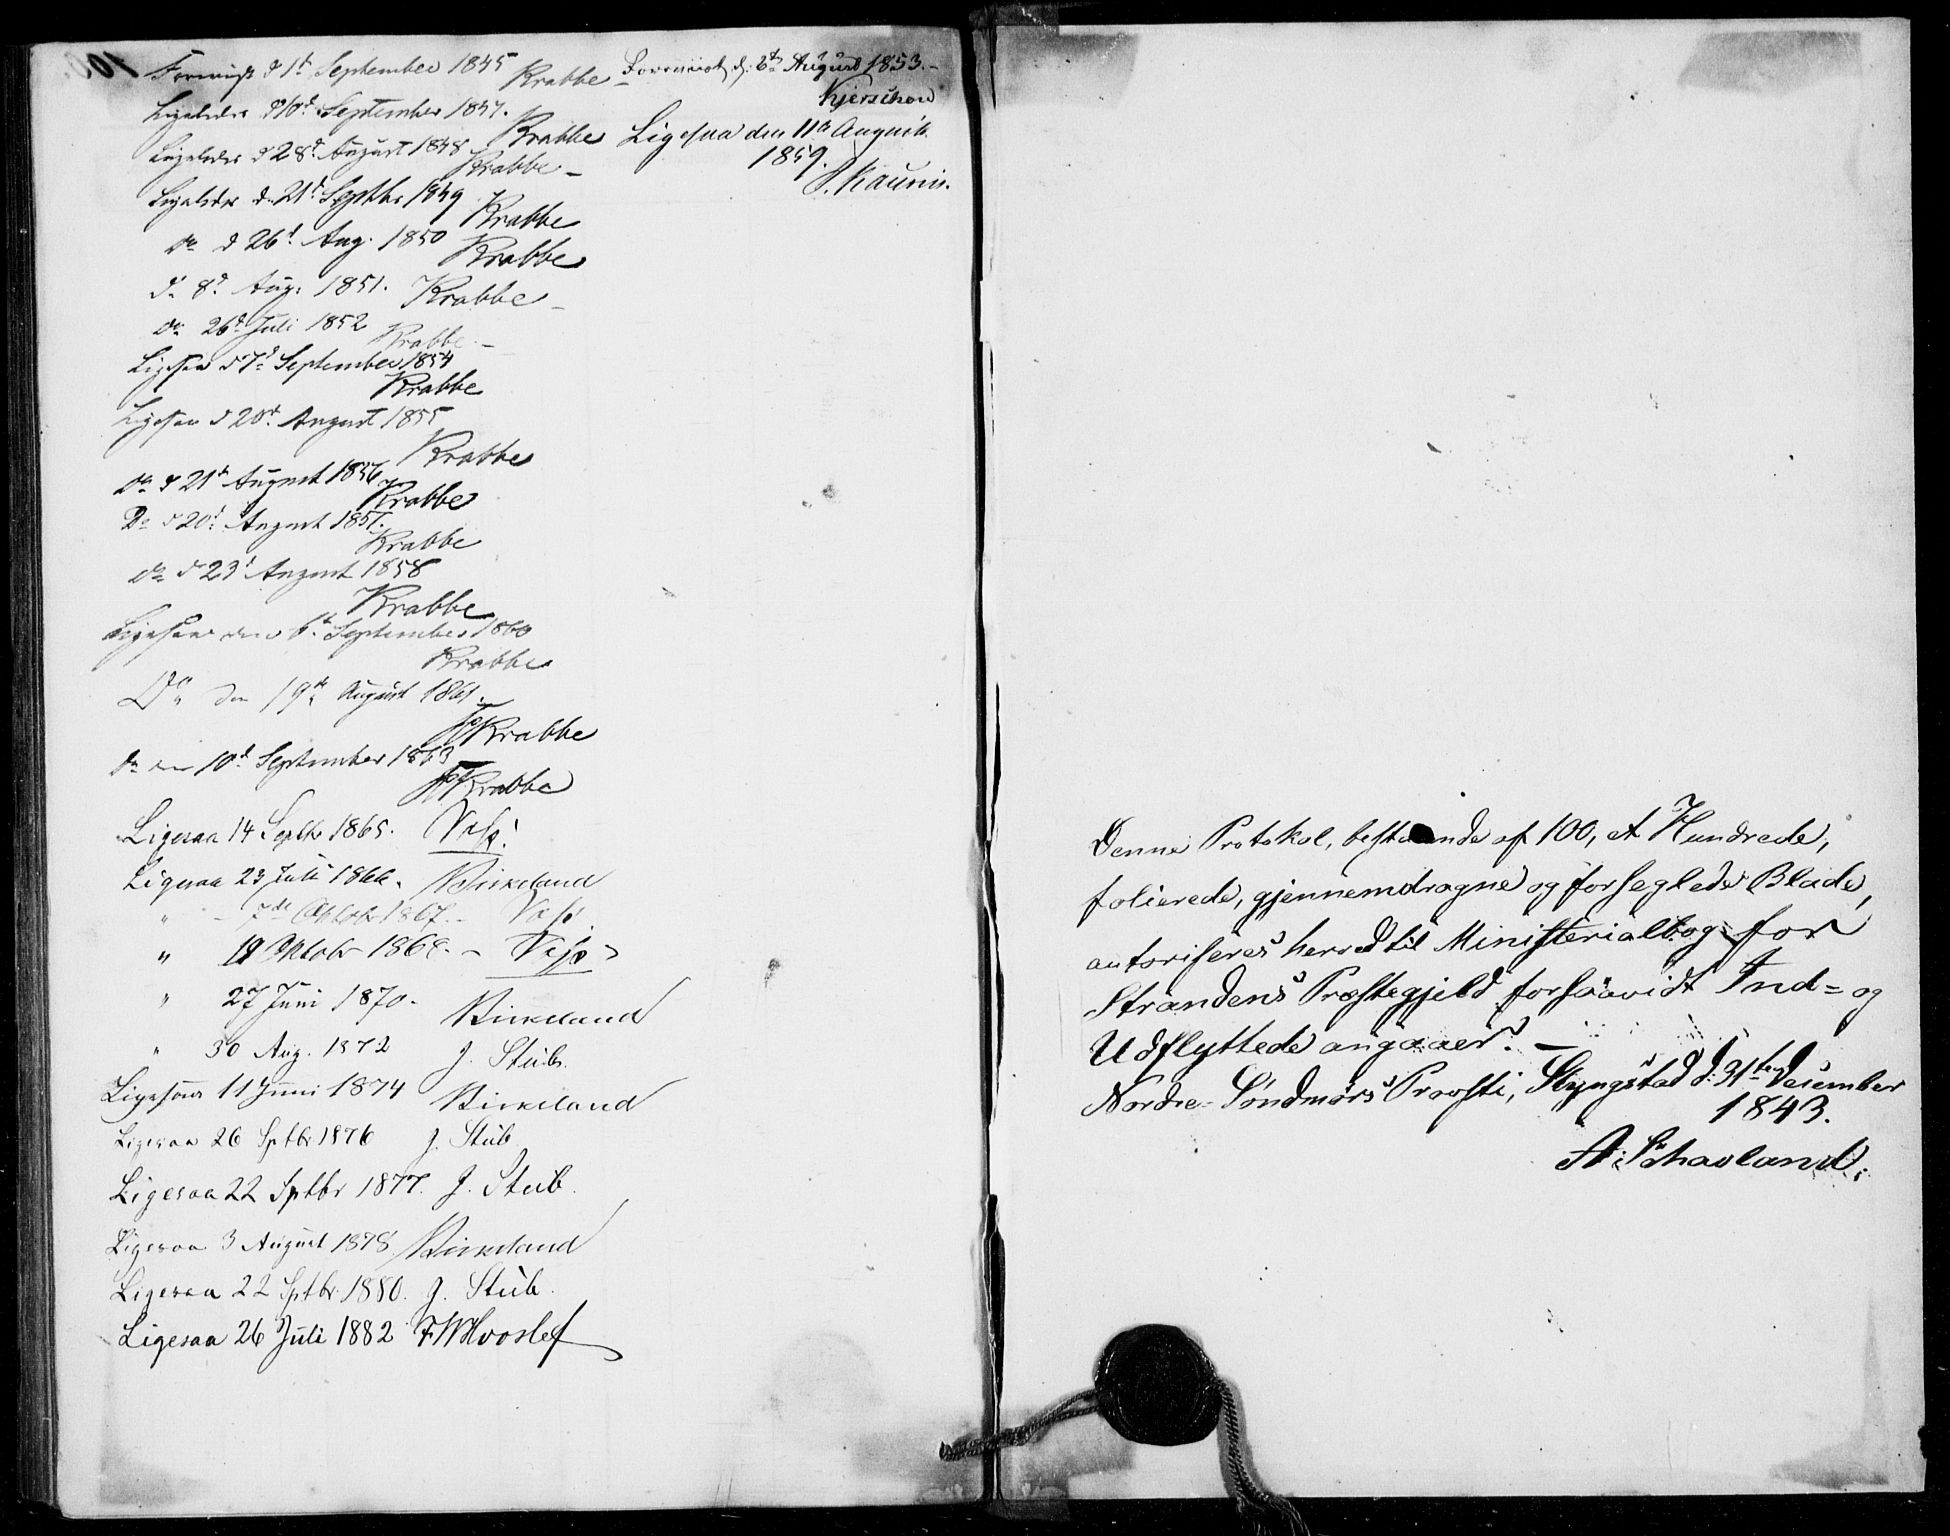 Foreviist d 1ste September 1845 Krabbe
Ligeledes d 10de September 1847.
Krabbe
Ligeledes d 28d August 1848
Krabbe
Ligeledes d. 21d Septbr 1849
Krabbe
do d 26d Aug. 1850
Krabbe
do 8d Aug. 1851. Krabbe
do 26d Juli 1852
Krabbe
Ligesaa d 7d September 1854
Krabbe
Ligesaa d 20d August 1855
Krabbe
do d 21d August 1856
Krabbe
Do d 20d August 1857.
Krabbe
do d 23d August 1858
Krabbe
Ligesaa den 6te September 1860
Krabbe
Do den 19de August 1861.
Krabbe
do den 10d September 1863
Krabbe
Ligesaa 14 Septbr 1865.
Ligesaa 23 Juli 1866. Birkeland
" - 7de Oktobr 1867. -
" Oktobr 1868. -
" 27 Juni 1870. Birkeland
" 30 Aug. 1872 J. Stub.
Ligesaa 11 Juni 1874 Birkeland
Ligesaa 26 Sptbr 1876 J. Stub
Ligesaa 22 Sptbr 1877. J. Stub.
Ligesaa 3 August 1878 Birkeland
Ligesaa 22 Sptbr 1880. J. Stub.
Ligesaa 26 Juli 1882 FWHvoslef
Foreviist d. August 1853.
Kjerschow
Ligesaa den 11te August
1859.
Denne Protokol, bestaaende af 100, et Hundrede,
folierede, gjennemdragne og forseglede Blade,
autoriseres herved til Ministerialbog for
Strandens Præstegjeld forsaavidt Ind= og
Udflyttede angaaer. —
Nordre Søndmørs Provsti, Slyngstad d: 31te December
1843.
A: Schavland: